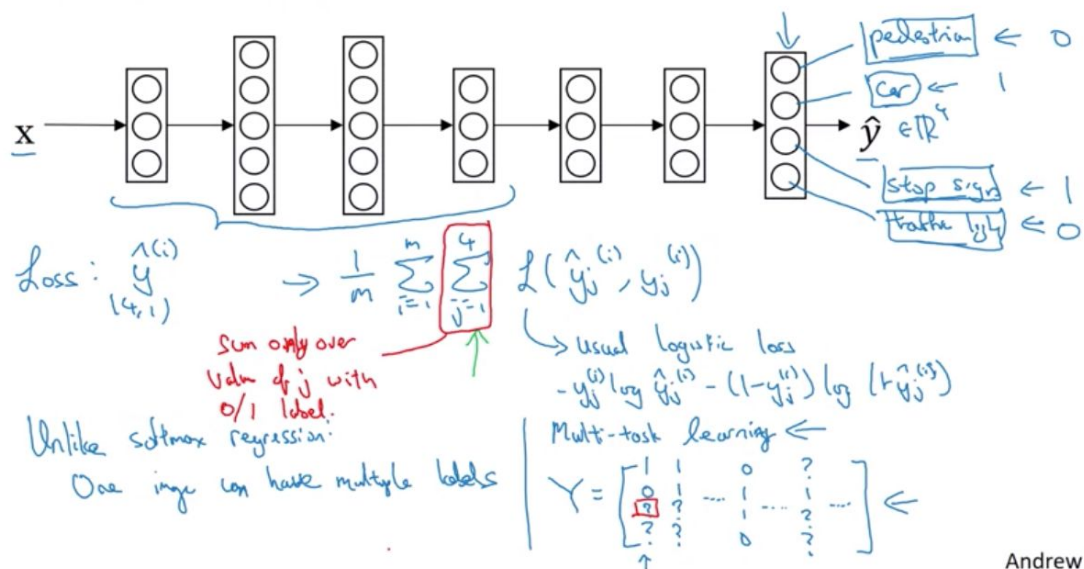 pedestrian ← 0
car ← 1
x
ŷ ∈ ℝ⁴
stop sign ← 1
← 0
Loss: ŷ^(i) → 1/m ∑_{i=1}^{m} ∑_{j=1}^{4} L(ŷ_j^(i), y_j^(i))
(4,1)
Sum only over
value of j with
0/1 label.
→ usual logistic loss
- y_j^(i) log ŷ_j^(i) - (1-y_j^(i)) log (1-ŷ_j^(i))
Unlike softmax regression:
One image can have multiple labels
Multi-task learning ←
1 1 0 ?
Y = [ 0 1 .... 1 1 ] ←
? ? 1 .... ? ....
? ? 0 ?
Andrew